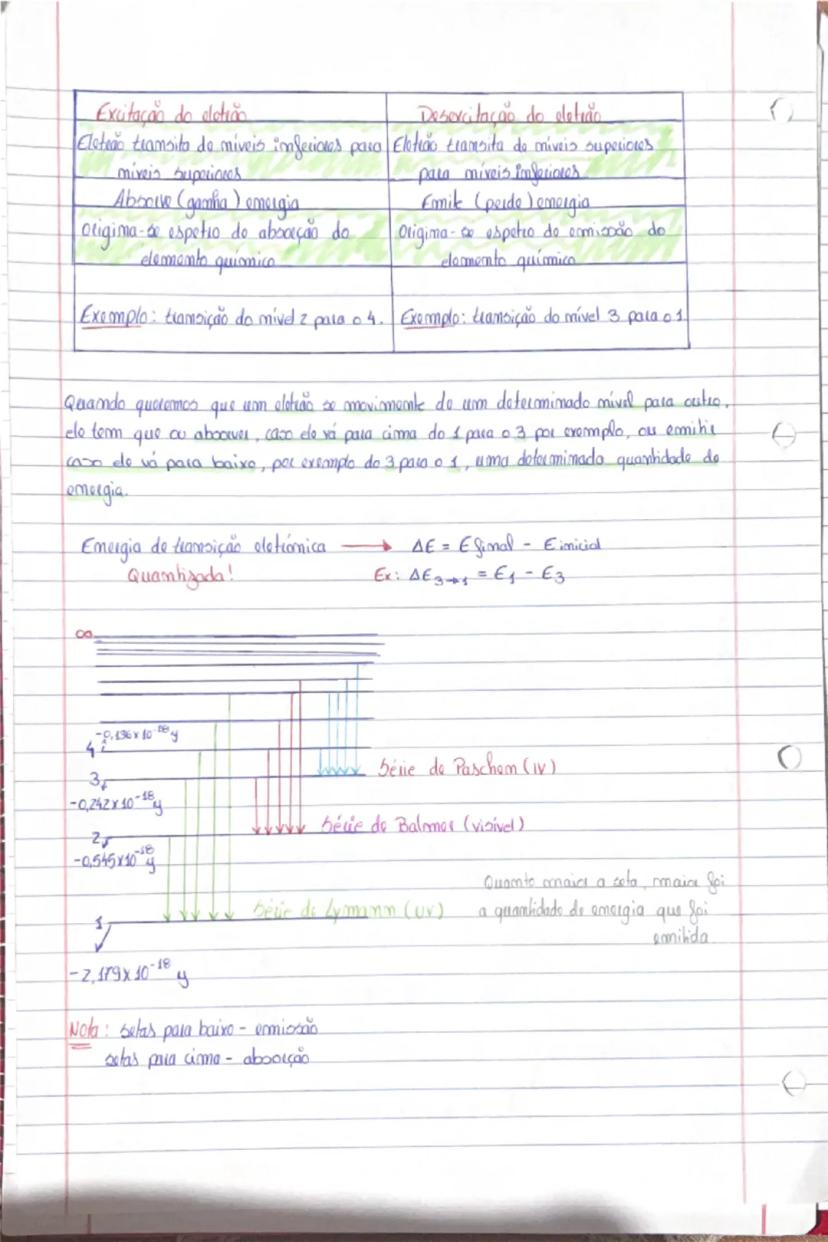 Excitação do eletrão
Desexcitação do eletrão
Eletrão transita de níveis inferiores para
níveis superiores
Eletrão transita de níveis superiores
para níveis inferiores
Absorve (ganha) energia
Emite (perde) energia
Origina-se espetro de absorção do
elemento químico
Origina-se espetro de emissão do
elemento químico
Exemplo: transição do nível 2 para o 4.
Exemplo: transição do nível 3 para o 1
Quando queremos que um eletrão se movimente de um determinado nível para outro,
ele tem que ou absorver, caso ele vá para cima do 1 para o 3 por exemplo, ou emitir
caso ele vá para baixo, por exemplo do 3 para o 1, uma determinada quantidade de
energia.
Energia de transição eletrónica → ΔE = E final - E inicial
Quantizada!
Ex: ΔE3→1 = E1 - E3
∞
-0,136 x 10^-18 J
4
3
Série de Paschen (IV)
-0,242 x 10^-18 J
2
Série de Balmer (visível)
-0,545 x 10^-18 J
1
Série de Lymann (UV)
Quanto maior a seta, maior foi
a quantidade de energia que foi
emitida
-2,179 x 10^-18 J
Nota: setas para baixo - emissão
setas para cima - absorção